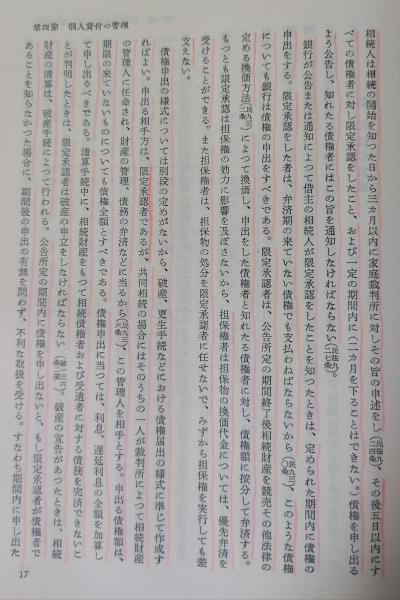 第四節 個人貸付の管理
相続人は相続の開始を知つた日から三カ月以内に家庭裁判所に対しその旨の申述をし(民法九二四条)、その後五日以内にす
べての債権者に対し限定承認をしたこと、および一定の期間内に(二カ月を下ることはできない。)債権を申し出る
よう公告し、知れたる債権者にはこの旨を通知しなければならない(民法九二七条)。
銀行が公告または通知によつて借主の相続人が限定承認をしたことを知つたときは、定められた期間内に債権の
申出をする。限定承認をした者は、弁済期の来ていない債権でも支払わねばならないから(民九三〇条)、このような債権
についても銀行は債権の申出をすべきである。限定承認者は、公告所定の期間終了後相続財産を競売その他法律の
定める換価方法(民九三二)によつて換価し、申出をした債権者と知れたる債権者に対し、債権額に按分して弁済する。
もつとも限定承認は担保権の効力に影響を及ぼさないから、担保権者は担保物の換価代金については、優先弁済を
受けることができる。また担保権者は、担保物の処分を限定承認者に任せないで、みずから担保権を実行しても差
支えない。
債権申出の様式については別段の定めがないから、破産、更生手続などにおける債権届出の様式に準じて作成す
ればよい。申出る相手方は、限定承認者であるが、共同相続の場合にはそのうちの一人が裁判所によつて相続財産
の管理人に任命され、財産の管理、債務の弁済などに当るから(民九三六条)、この管理人を相手とする。申出る債権額は、
期限の来ていないものについても債権全額とすべきである。債権申出に当つては、利息、遅延利息の全額を加算し
て申し出るべきである。清算手続中に、相続財産をもつて相続債権者および受遺者に対する債務を完済できないこ
とが判明したときは、限定承認者は破産の申立をしなければならない(破一三六)。破産の宣告があつたときは、相続
財産の清算は、破産手続によつて行われる。公告所定の期間内に債権を申し出ないと、もし限定承認者が債権者で
あることを知らなかつた場合に、期間後の申出の有無を問わず、不利な取扱を受ける。すなわち期間内に申し出た
17